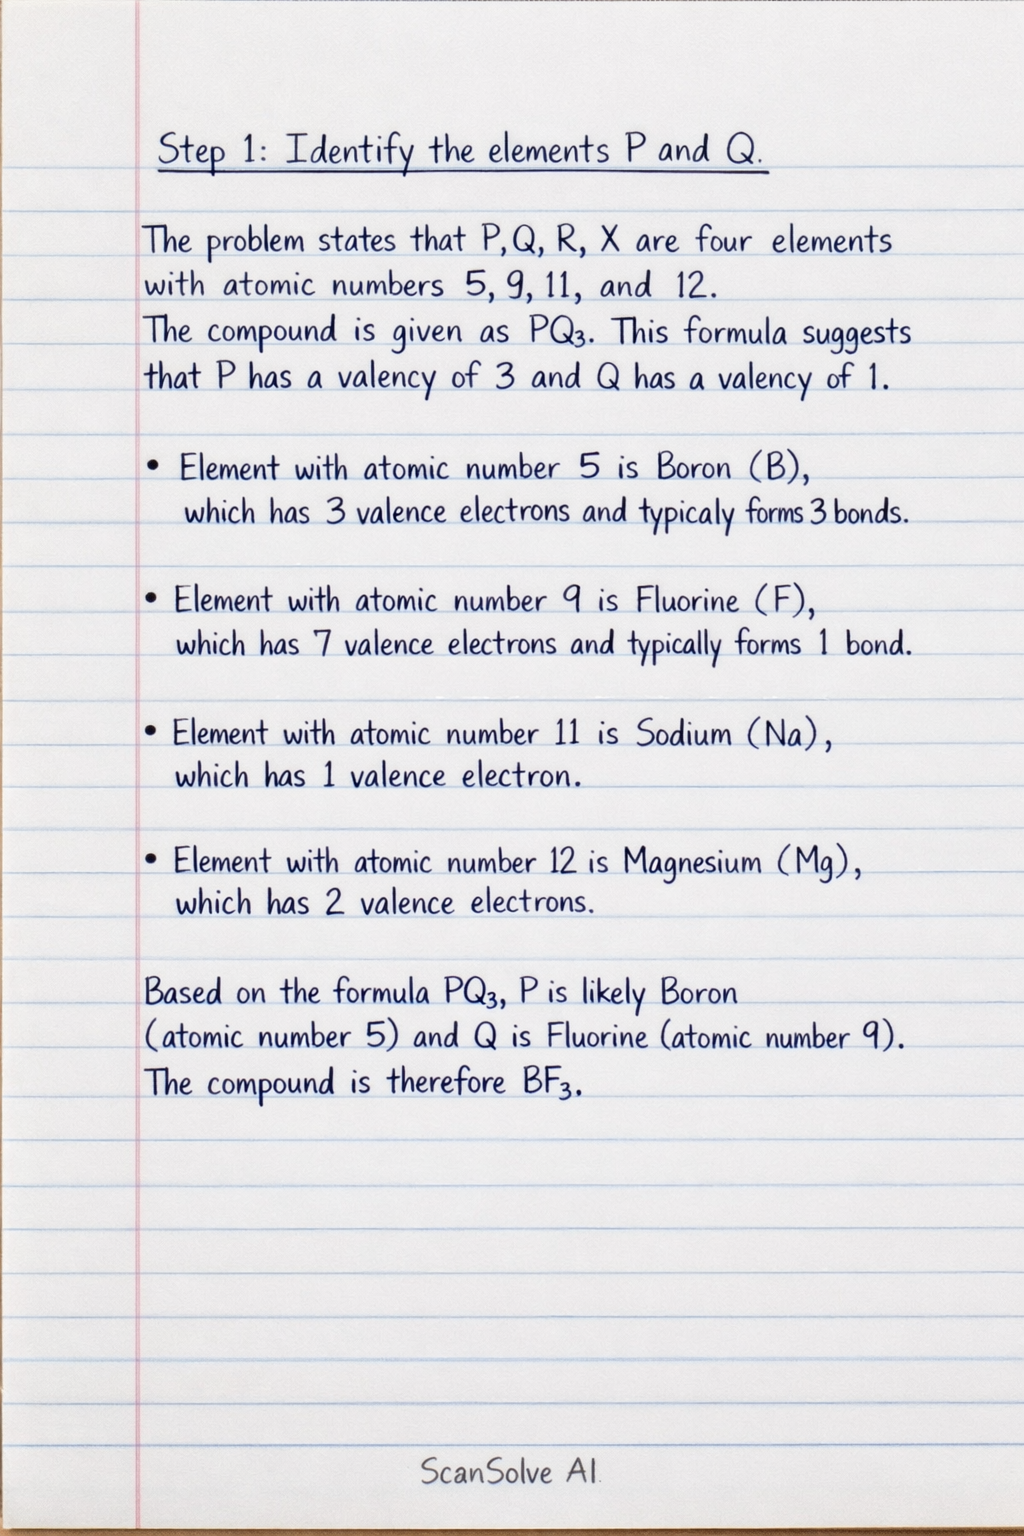 Step 1: Identify the elements P and Q.
The problem states that P, Q, R, X are four elements
with atomic numbers 5, 9, 11, and 12.
The compound is given as PQ₃. This formula suggests
that P has a valency of 3 and Q has a valency of 1.
• Element with atomic number 5 is Boron (B),
which has 3 valence electrons and typicaly forms 3 bonds.
• Element with atomic number 9 is Fluorine (F),
which has 7 valence electrons and typically forms 1 bond.
• Element with atomic number 11 is Sodium (Na),
which has 1 valence electron.
• Element with atomic number 12 is Magnesium (Mg),
which has 2 valence electrons.
Based on the formula PQ₃, P is likely Boron
(atomic number 5) and Q is Fluorine (atomic number 9).
The compound is therefore BF₃.
ScanSolve AI